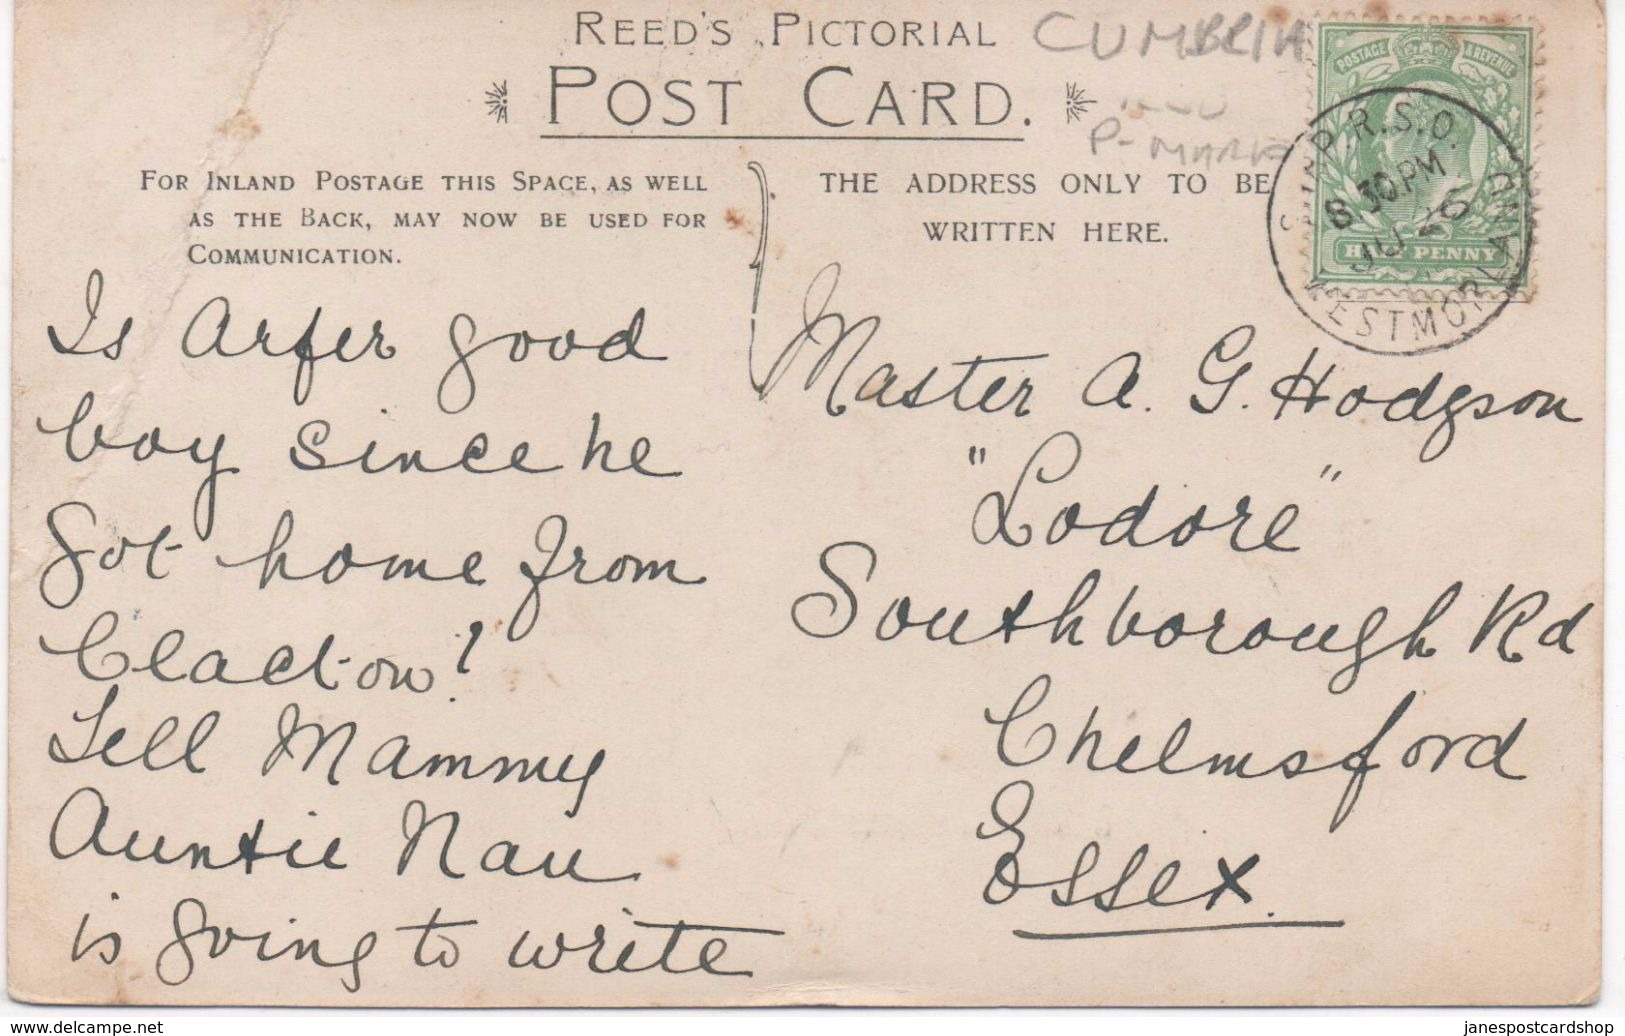 REED'S PICTORIAL
POST CARD.
CUMBRIA
P-MARK
FOR INLAND POSTAGE THIS SPACE, AS WELL
AS THE BACK, MAY NOW BE USED FOR
COMMUNICATION.
THE ADDRESS ONLY TO BE
WRITTEN HERE.
POSTAGE & REVENUE
HALF PENNY
R.S.O.
8 30PM
JU 26
WESTMORLAND
Is Arfer good
boy since he
got home from
Clacton?
Tell Mammy
Auntie Nan
is going to write
Master A. G. Hodgson
"Lodore"
Southborough Rd
Chelmsford
Essex.
© delcampe.net
janespostcardshop